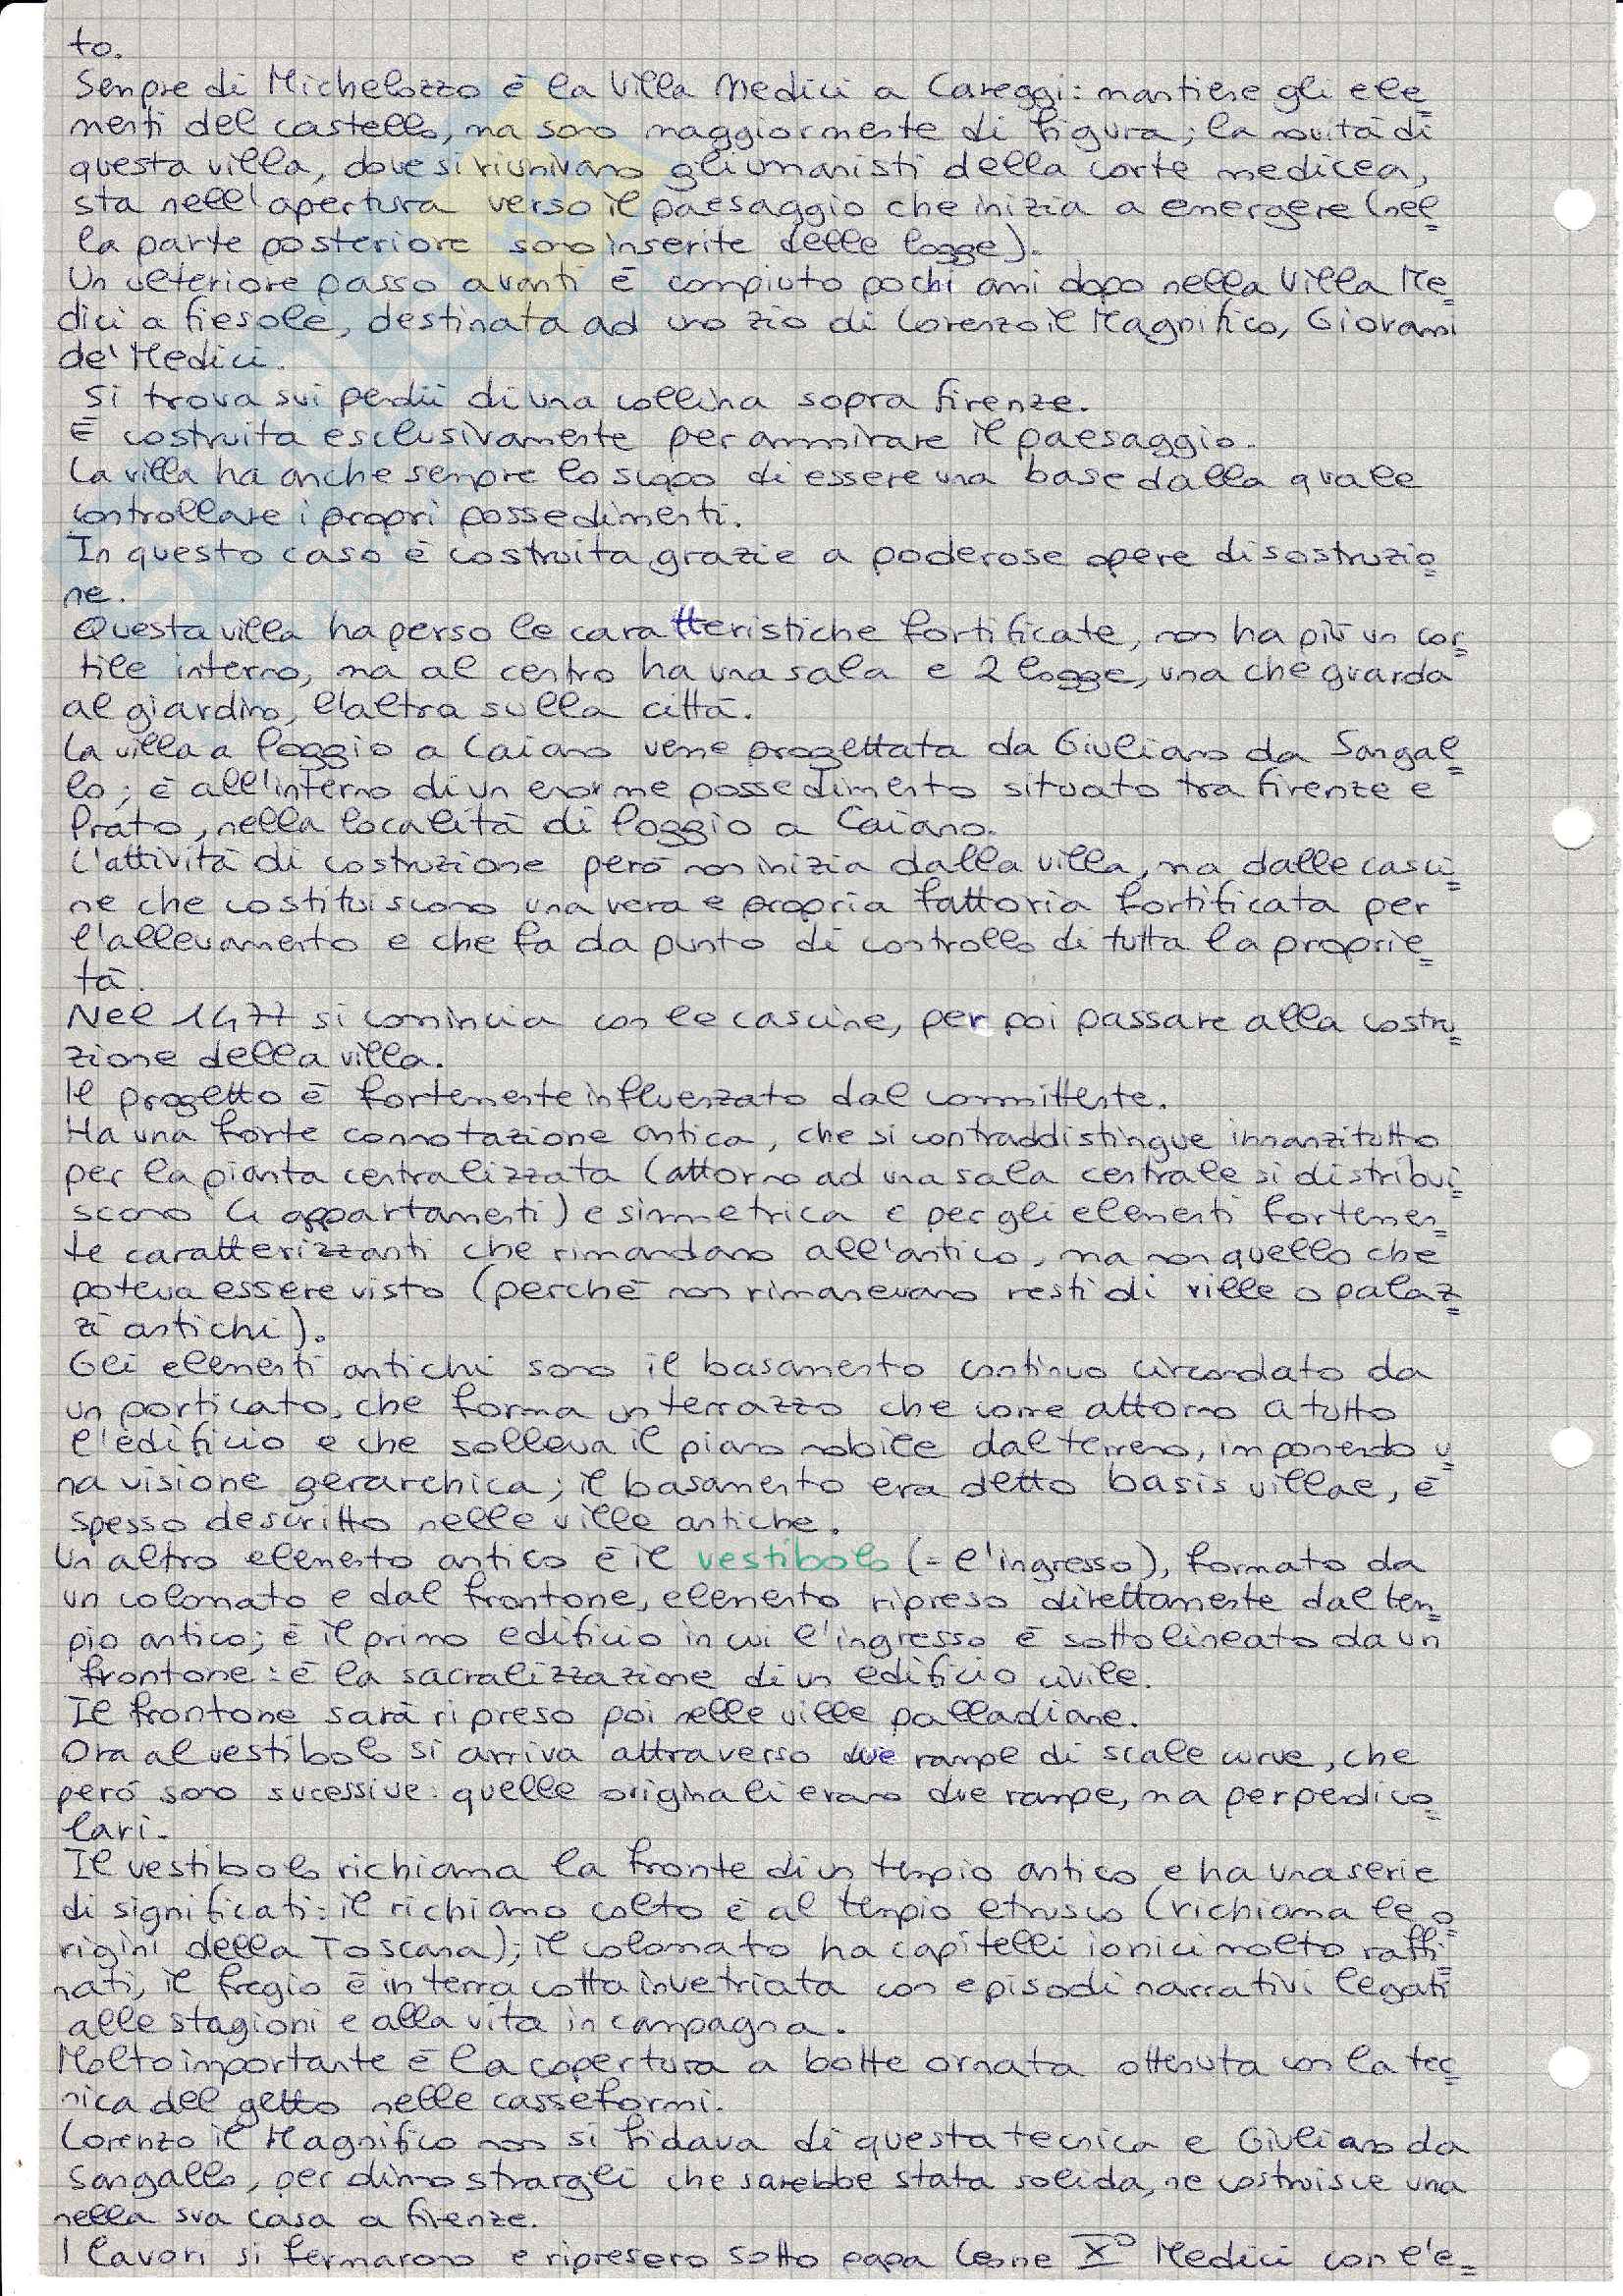 to.
Sempre di Michelozzo è la Villa Medici a Careggi: mantiene gli ele=
menti del castello, ma sono maggiormente di figura; la novità di
questa villa, dove si riunivano gli umanisti della corte medicea,
sta nell'apertura verso il paesaggio che inizia a emergere (nel=
la parte posteriore sono inserite delle logge).
Un ulteriore passo avanti è compiuto pochi anni dopo nella Villa Me=
dici a Fiesole, destinata ad uno zio di Lorenzo il Magnifico, Giovanni
de' Medici.
Si trova sui pendii di una collina sopra Firenze.
È costruita esclusivamente per ammirare il paesaggio.
La villa ha anche sempre lo scopo di essere una base dalla quale
controllare i propri possedimenti.
In questo caso è costruita grazie a poderose opere di sostruzio=
ne.
Questa villa ha perso le caratteristiche fortificate, non ha più un cor=
tile interno, ma al centro ha una sala e 2 logge, una che guarda
al giardino, l'altra sulla città.
La villa a Poggio a Caiano venne progettata da Giuliano da Sangal=
lo; è all'interno di un enorme possedimento situato tra Firenze e
Prato, nella località di Poggio a Caiano.
L'attività di costruzione però non inizia dalla villa, ma dalle casci=
ne che costituiscono una vera e propria fattoria fortificata per
l'allevamento e che fa da punto di controllo di tutta la proprie=
tà.
Nel 1477 si comincia con le cascine, per poi passare alla costru=
zione della villa.
Il progetto è fortemente influenzato dal committente.
Ha una forte connotazione antica, che si contraddistingue innanzitutto
per la pianta centralizzata (attorno ad una sala centrale si distribui=
scono 4 appartamenti) e simmetrica e per gli elementi fortemen=
te caratterizzanti che rimandano all'antico, ma non quello che
poteva essere visto (perché non rimanevano resti di ville o palaz=
zi antichi).
Gli elementi antichi sono il basamento continuo circondato da
un porticato, che forma un terrazzo che corre attorno a tutto
l'edificio e che solleva il piano nobile dal terreno, imponendo u=
na visione gerarchica; il basamento era detto basis villae, è
spesso descritto nelle ville antiche.
Un altro elemento antico è il vestibolo (= l'ingresso), formato da
un colonnato e dal frontone, elemento ripreso direttamente dal tem=
pio antico; è il primo edificio in cui l'ingresso è sottolineato da un
frontone: è la sacralizzazione di un edificio civile.
Il frontone sarà ripreso poi nelle ville palladiane.
Ora al vestibolo si arriva attraverso due rampe di scale curve, che
però sono sucessive: quelle originali erano due rampe, ma perpendico=
lari.
Il vestibolo richiama la fronte di un tempio antico e ha una serie
di significati: il richiamo colto è al tempio etrusco (richiama le o=
rigini della Toscana); il colonnato ha capitelli ionici molto raffi=
nati, il fregio è in terra cotta invetriata con episodi narrativi legati
alle stagioni e alla vita in campagna.
Molto importante è la copertura a botte ornata ottenuta con la tec=
nica del getto nelle casseformi.
Lorenzo il Magnifico non si fidava di questa tecnica e Giuliano da
Sangallo, per dimostrargli che sarebbe stata solida, ne costruisce una
nella sua casa a Firenze.
I lavori si fermarono e ripresero sotto papa Leone X° Medici con l'e=